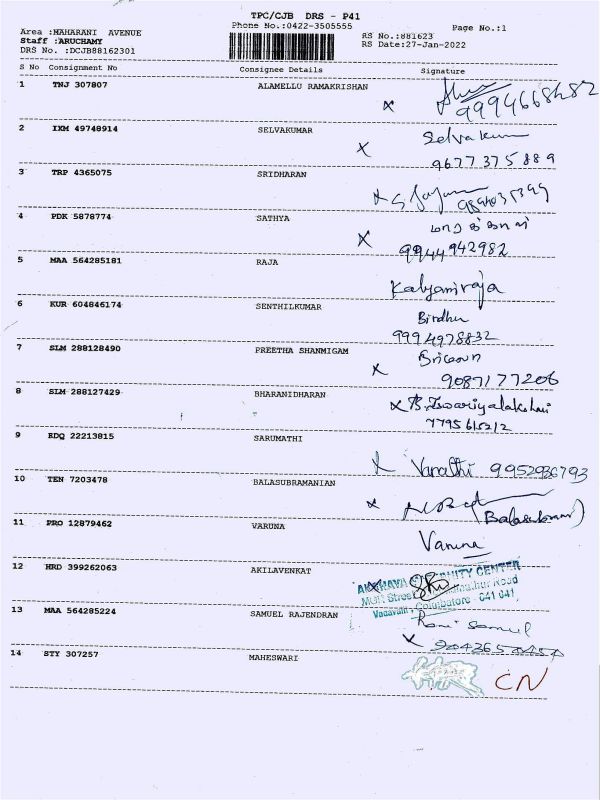 TPC/CJB DRS - P41
Phone No.:0422-3505555
Page No.:1
Area :MAHARANI AVENUE
Staff :ARUCHAMY
DRS No. :DCJB88162301
RS No.:881623
RS Date:27-Jan-2022
S No Consignment No Consignee Details Signature
1 TNJ 307807 ALAMELLU RAMAKRISHAN
x 9994668482
2 IXM 49748914 SELVAKUMAR Selvakum
x 9677375889
3 TRP 4365075 SRIDHARAN
x
4 PDK 5878774 SATHYA
x 9944942982
5 MAA 564285181 RAJA
Kalyaniraja
6 KUR 604846174 SENTHILKUMAR
Bindhu
9994978832
7 SLM 288128490 PREETHA SHANMIGAM
x 9087177206
8 SLM 288127429 BHARANIDHARAN
x B.Iswariyalakshmi
7795615212
9 EDQ 22213815 SARUMATHI
x Vanathi 9952936793
10 TEN 7203478 BALASUBRAMANIAN
x
11 PRO 12879462 VARUNA
Varuna
12 HRD 399262063 AKILAVENKAT
Vadavalli, Coimbatore - 641 041.
13 MAA 564285224 SAMUEL RAJENDRAN
Rani Samuel
x
14 STY 307257 MAHESWARI
CN